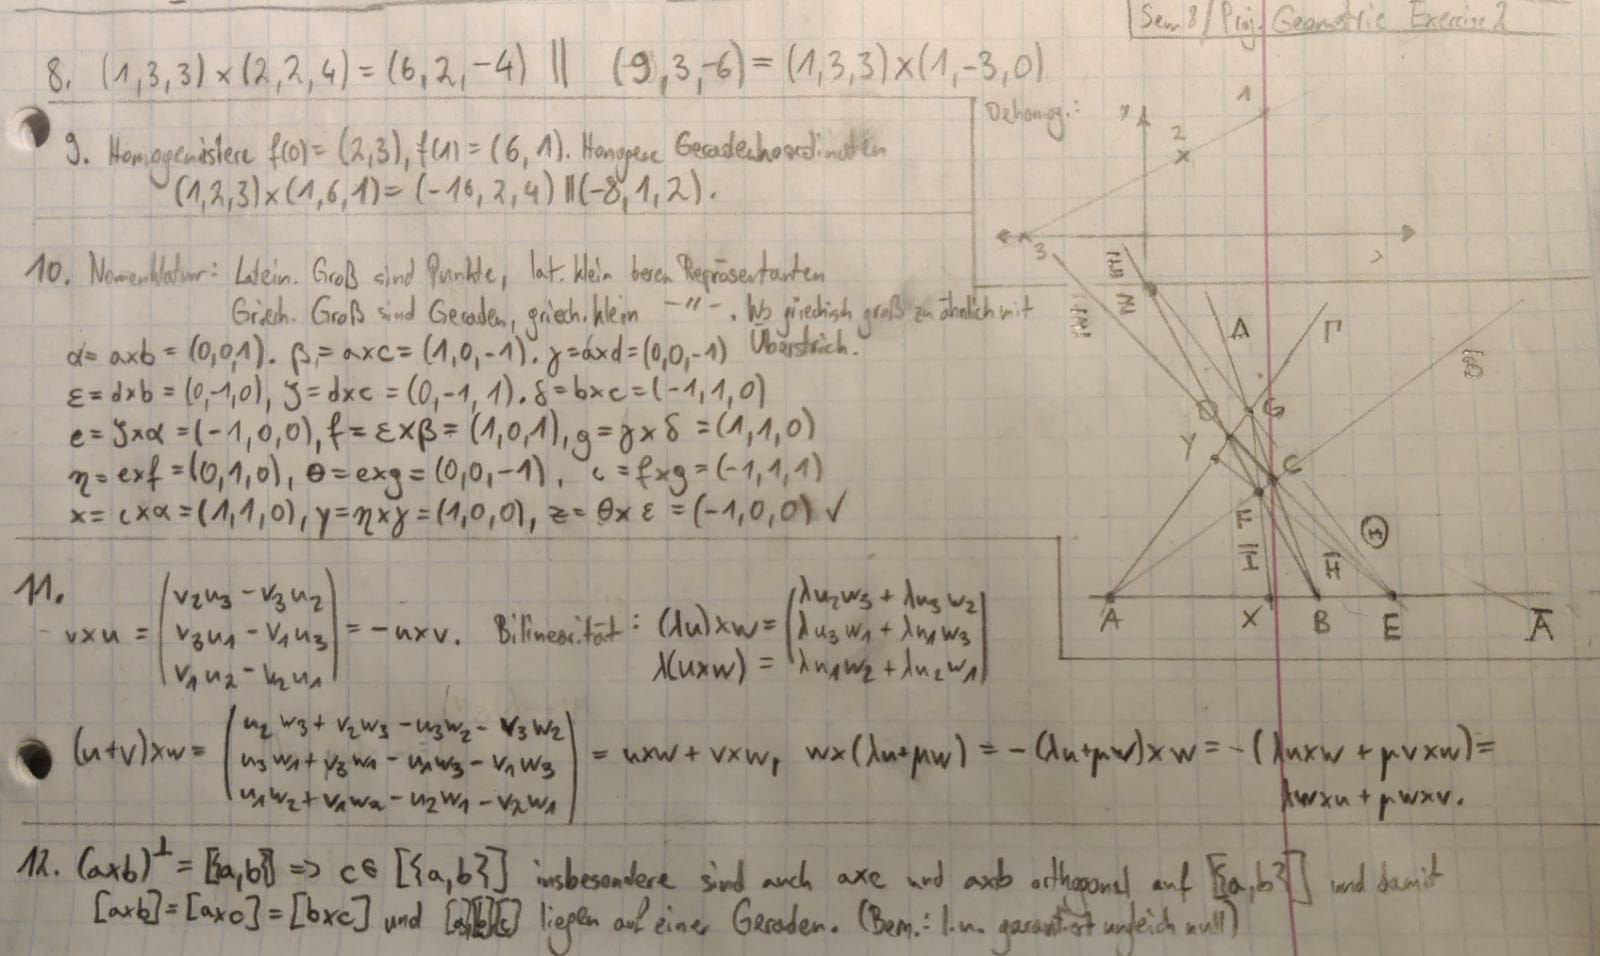 Sem 8 / Proj. Geometrie Exercise 2
8. (1,3,3)×(2,2,4) = (6,2,-4) || (-9,3,-6) = (1,3,3)×(1,-3,0)
Dehomog.:
1
2
3
9. Homogenisiere f(0) = (2,3), f(1) = (6,1). Homogene Geradenkoordinaten
(1,2,3)×(1,6,1) = (-16,2,4) || (-8,1,2).
10. Nomenklatur: Latein. Groß sind Punkte, lat. klein deren Repräsentanten
Griech. Groß sind Geraden, griech. klein —"—. Wo griechisch groß zu ähnlich mit
Überstrich.
α = a×b = (0,0,1). β = a×c = (1,0,-1). γ = a×d = (0,0,-1)
ε = d×b = (0,-1,0), ζ = d×c = (0,-1,1). δ = b×c = (-1,1,0)
e = ζ×α = (-1,0,0), f = ε×β = (1,0,1), g = γ×δ = (1,1,0)
η = e×f = (0,1,0), θ = e×g = (0,0,-1), ι = f×g = (-1,1,1)
x = ι×α = (1,1,0), y = η×γ = (1,0,0), z = θ×ε = (-1,0,0) ✓
Δ Γ
D G
Y C
F Θ
A X B E A̅
11.
v×u = (v₂u₃ - v₃u₂
v₃u₁ - v₁u₃
v₁u₂ - v₂u₁) = -u×v. Bilinearität: (λu)×w = (λu₂w₃ + λu₃w₂
λu₃w₁ + λu₁w₃
λ(u×w) = λu₁w₂ + λu₂w₁)
(u+v)×w = (u₂w₃ + v₂w₃ - u₃w₂ - v₃w₂
u₃w₁ + v₃w₁ - u₁w₃ - v₁w₃
u₁w₂ + v₁w₂ - u₂w₁ - v₂w₁) = u×w + v×w, w×(λu+μw) = -(λu+μw)×w = -(λu×w + μv×w) =
λw×u + μw×v.
12. (a×b)^⊥ = [{a,b}] => c∈ [{a,b}] insbesondere sind auch a×c und a×b orthogonal auf [{a,b}] und damit
[a×b] = [a×c] = [b×c] und [a][b][c] liegen auf einer Geraden. (Bem.: l.u. garantiert ungleich null)